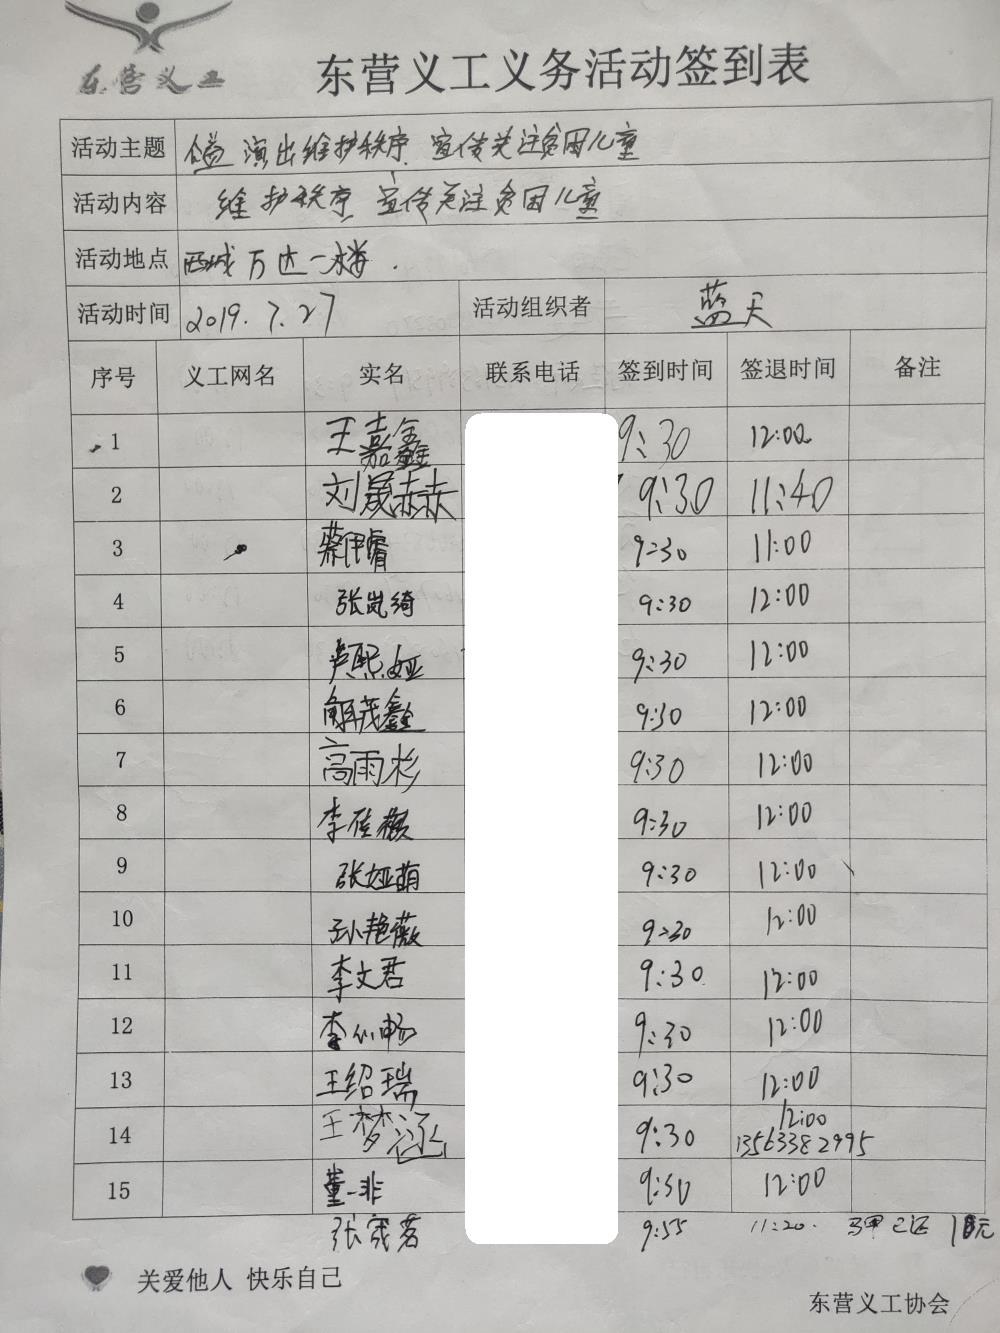 东营义工
东营义工义务活动签到表
活动主题 演出维护秩序 宣传关注贫困儿童
活动内容 维护秩序 宣传关注贫困儿童
活动地点 西城万达一楼.
活动时间 2019.7.27 活动组织者 蓝天
序号 义工网名 实名 联系电话 签到时间 签退时间 备注
1 王嘉鑫 9:30 12:00
2 刘晟赫 9:30 11:40
3 蔡伊睿 9:30 11:00
4 张岚绮 9:30 12:00
5 芦熙娅 9:30 12:00
6 解茂鑫 9:30 12:00
7 高雨杉 9:30 12:00
8 李佳 9:30 12:00
9 张娅萌 9:30 12:00
10 孙艳薇 9:30 12:00
11 李文君 9:30 12:00
12 李心畅 9:30 12:00
13 王绍瑞 9:30 12:00
14 王梦涵 9:30 12:00
13563382995
15 董一非 9:30 12:00
张宬茗 9:55 11:20. 马甲已还 10元
关爱他人 快乐自己
东营义工协会